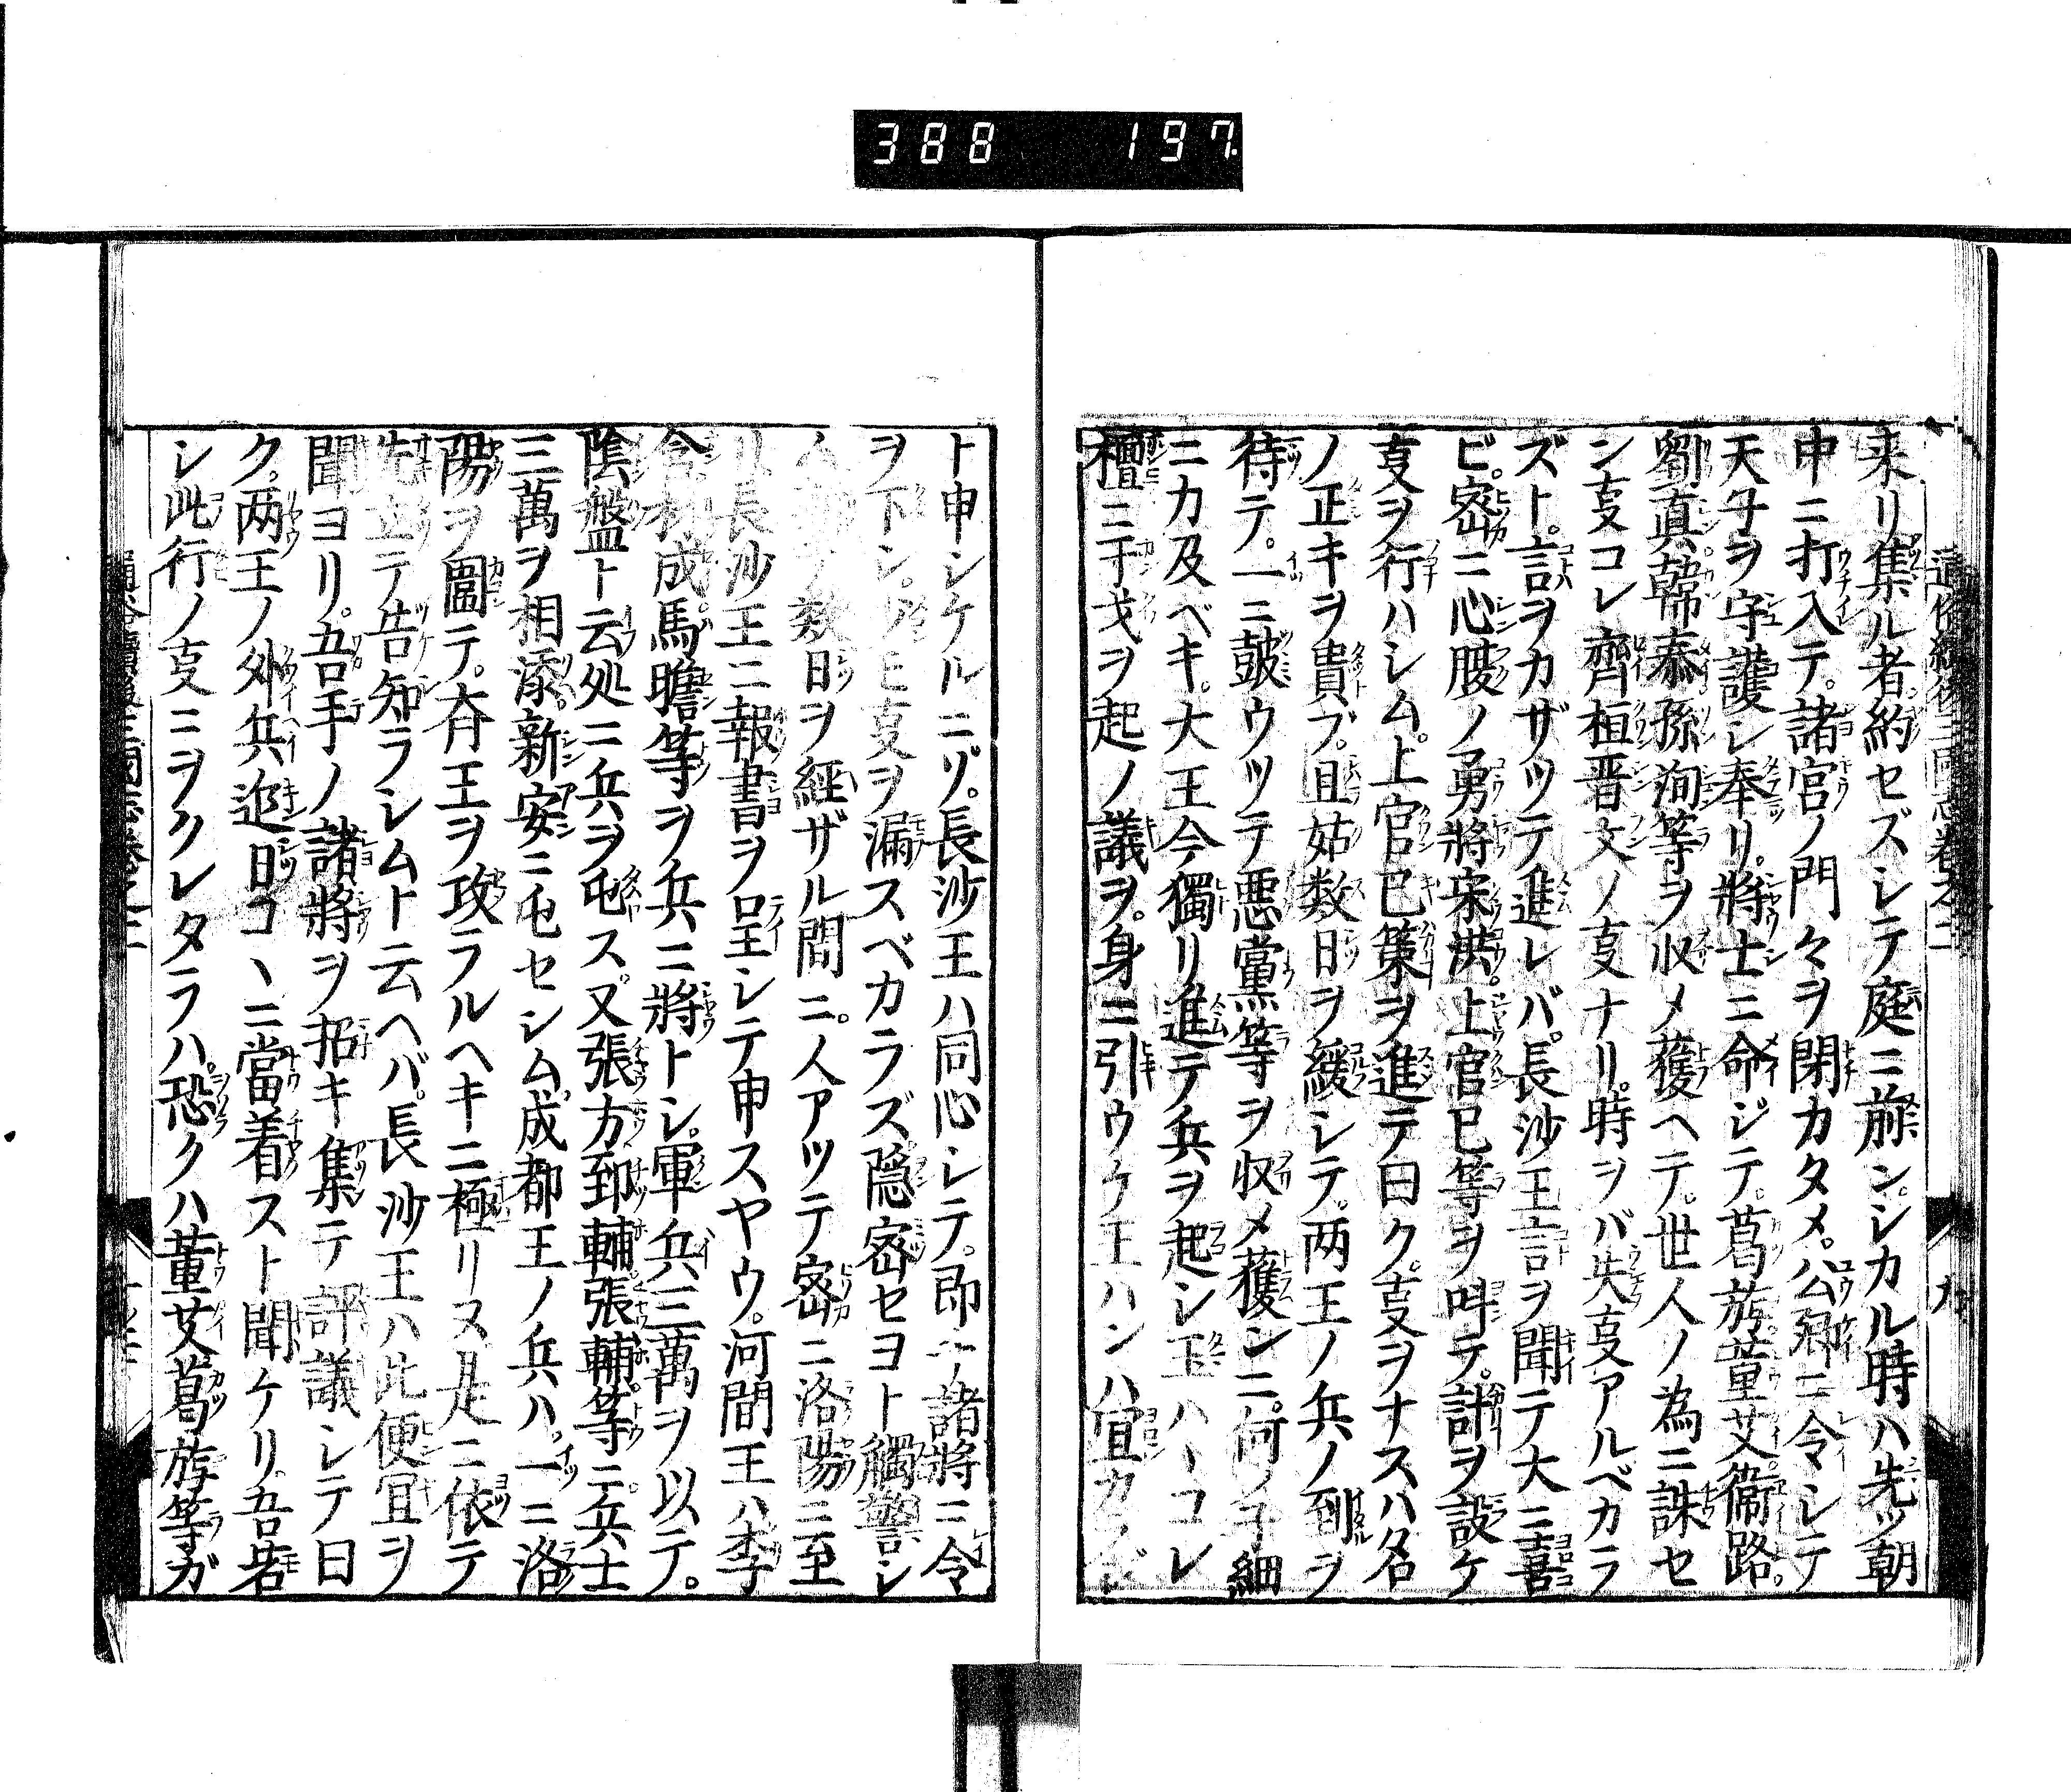 388 197
通俗續後三國志卷之二
九
来リ集ル者約セズシテ庭ニ前ン。シカル時ハ先ツ朝
中ニ打入テ。諸官ノ門々ヲ閉カタメ。公卿ニ令シテ
天子ヲ守護シ奉リ。將士ニ命ジテ。葛旟董艾衞路。
劉眞韓泰孫洵等ヲ収メ獲ヘテ。世人ノ為ニ誅セ
ン㕝コレ齊桓晋文ノ㕝ナリ。時ヲバ失㕝アルベカラ
ズト。言ヲカザツテ進レバ。長沙王言ヲ聞テ大ニ喜
ビ。密ニ心腹ノ勇將宋洪。上官巳等ヲ呌テ。計ヲ設ケ
㕝ヲ行ハシム。上官巳策ヲ進テ曰ク。㕝ヲナスハ名
ノ正キヲ貴ブ。且姑数日ヲ緩シテ。两王ノ兵ノ到ヲ
待テ。一ニ皷ウツテ悪黨等ヲ収メ獲ンニ。何ノ子細
ニカ及ベキ。大王今獨リ進テ兵ヲ起シ玉ハヽコレ
檀ニ干戈ヲ起ノ議ヲ。身ニ引ウケ王ハンハ宜カラジ
ト申シケルニゾ。長沙王ハ同心シテ。即チ諸將ニ令
ヲ下シ。㕝ヲ漏スベカラズ隠密セヨト觸警シ
数日ヲ經ザル間ニ。人アツテ密ニ洛陽ニ至
リ長沙王ニ報書ヲ呈シテ申スヤウ。河間王ハ李
含林成馬瞻等ヲ兵ニ將トシ。軍兵三萬ヲ以テ。
陰盤ト云処ニ兵ヲ屯ス。又張方郅輔張輔等ニ兵士
三萬ヲ相添。新安ニ屯セシム。成都王ノ兵ハ。一ニ洛
陽ヲ圖テ。斉王ヲ攻ラルヘキニ極リヌ是ニ依テ
先立テ告知ラシムト云ヘバ。長沙王ハ此便宜ヲ
聞ヨリ。吾手ノ諸將ヲ招キ集テ評議シテ曰
ク。两王ノ外兵迯日コヽニ當着スト聞ケリ。吾若
シ此行ノ㕝ニヲクレタラハ。恐クハ董艾葛旟等ガ
通俗續後三國志卷之二